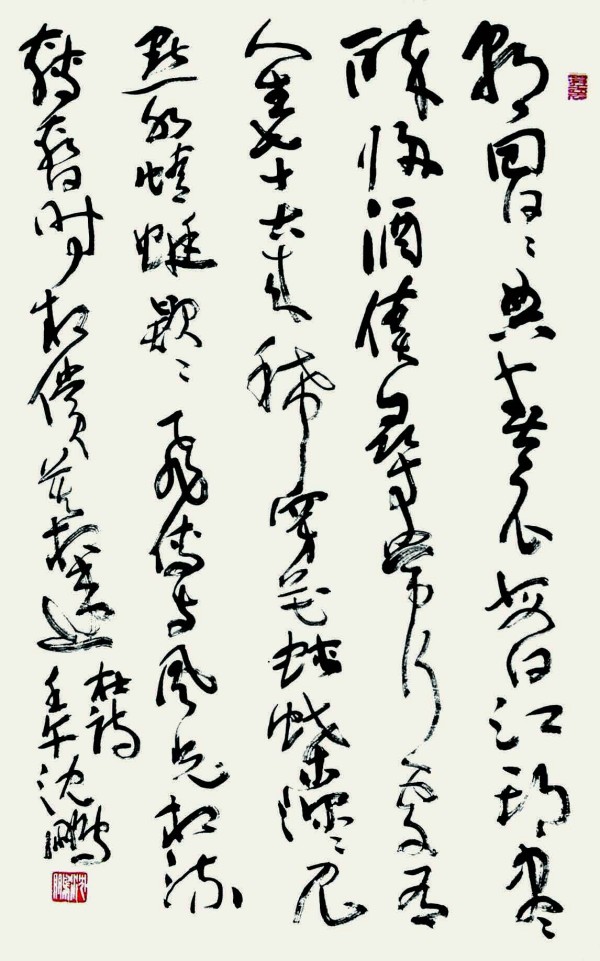 朝回日〻典春衣每日江頭盡
醉歸酒債尋常行處有
人生七十古來稀穿花蛺蝶深〻見
點水蜻蜓款〻飛傳与風光相流
轉暫時相償莫相違
杜詩
壬午沈鵬